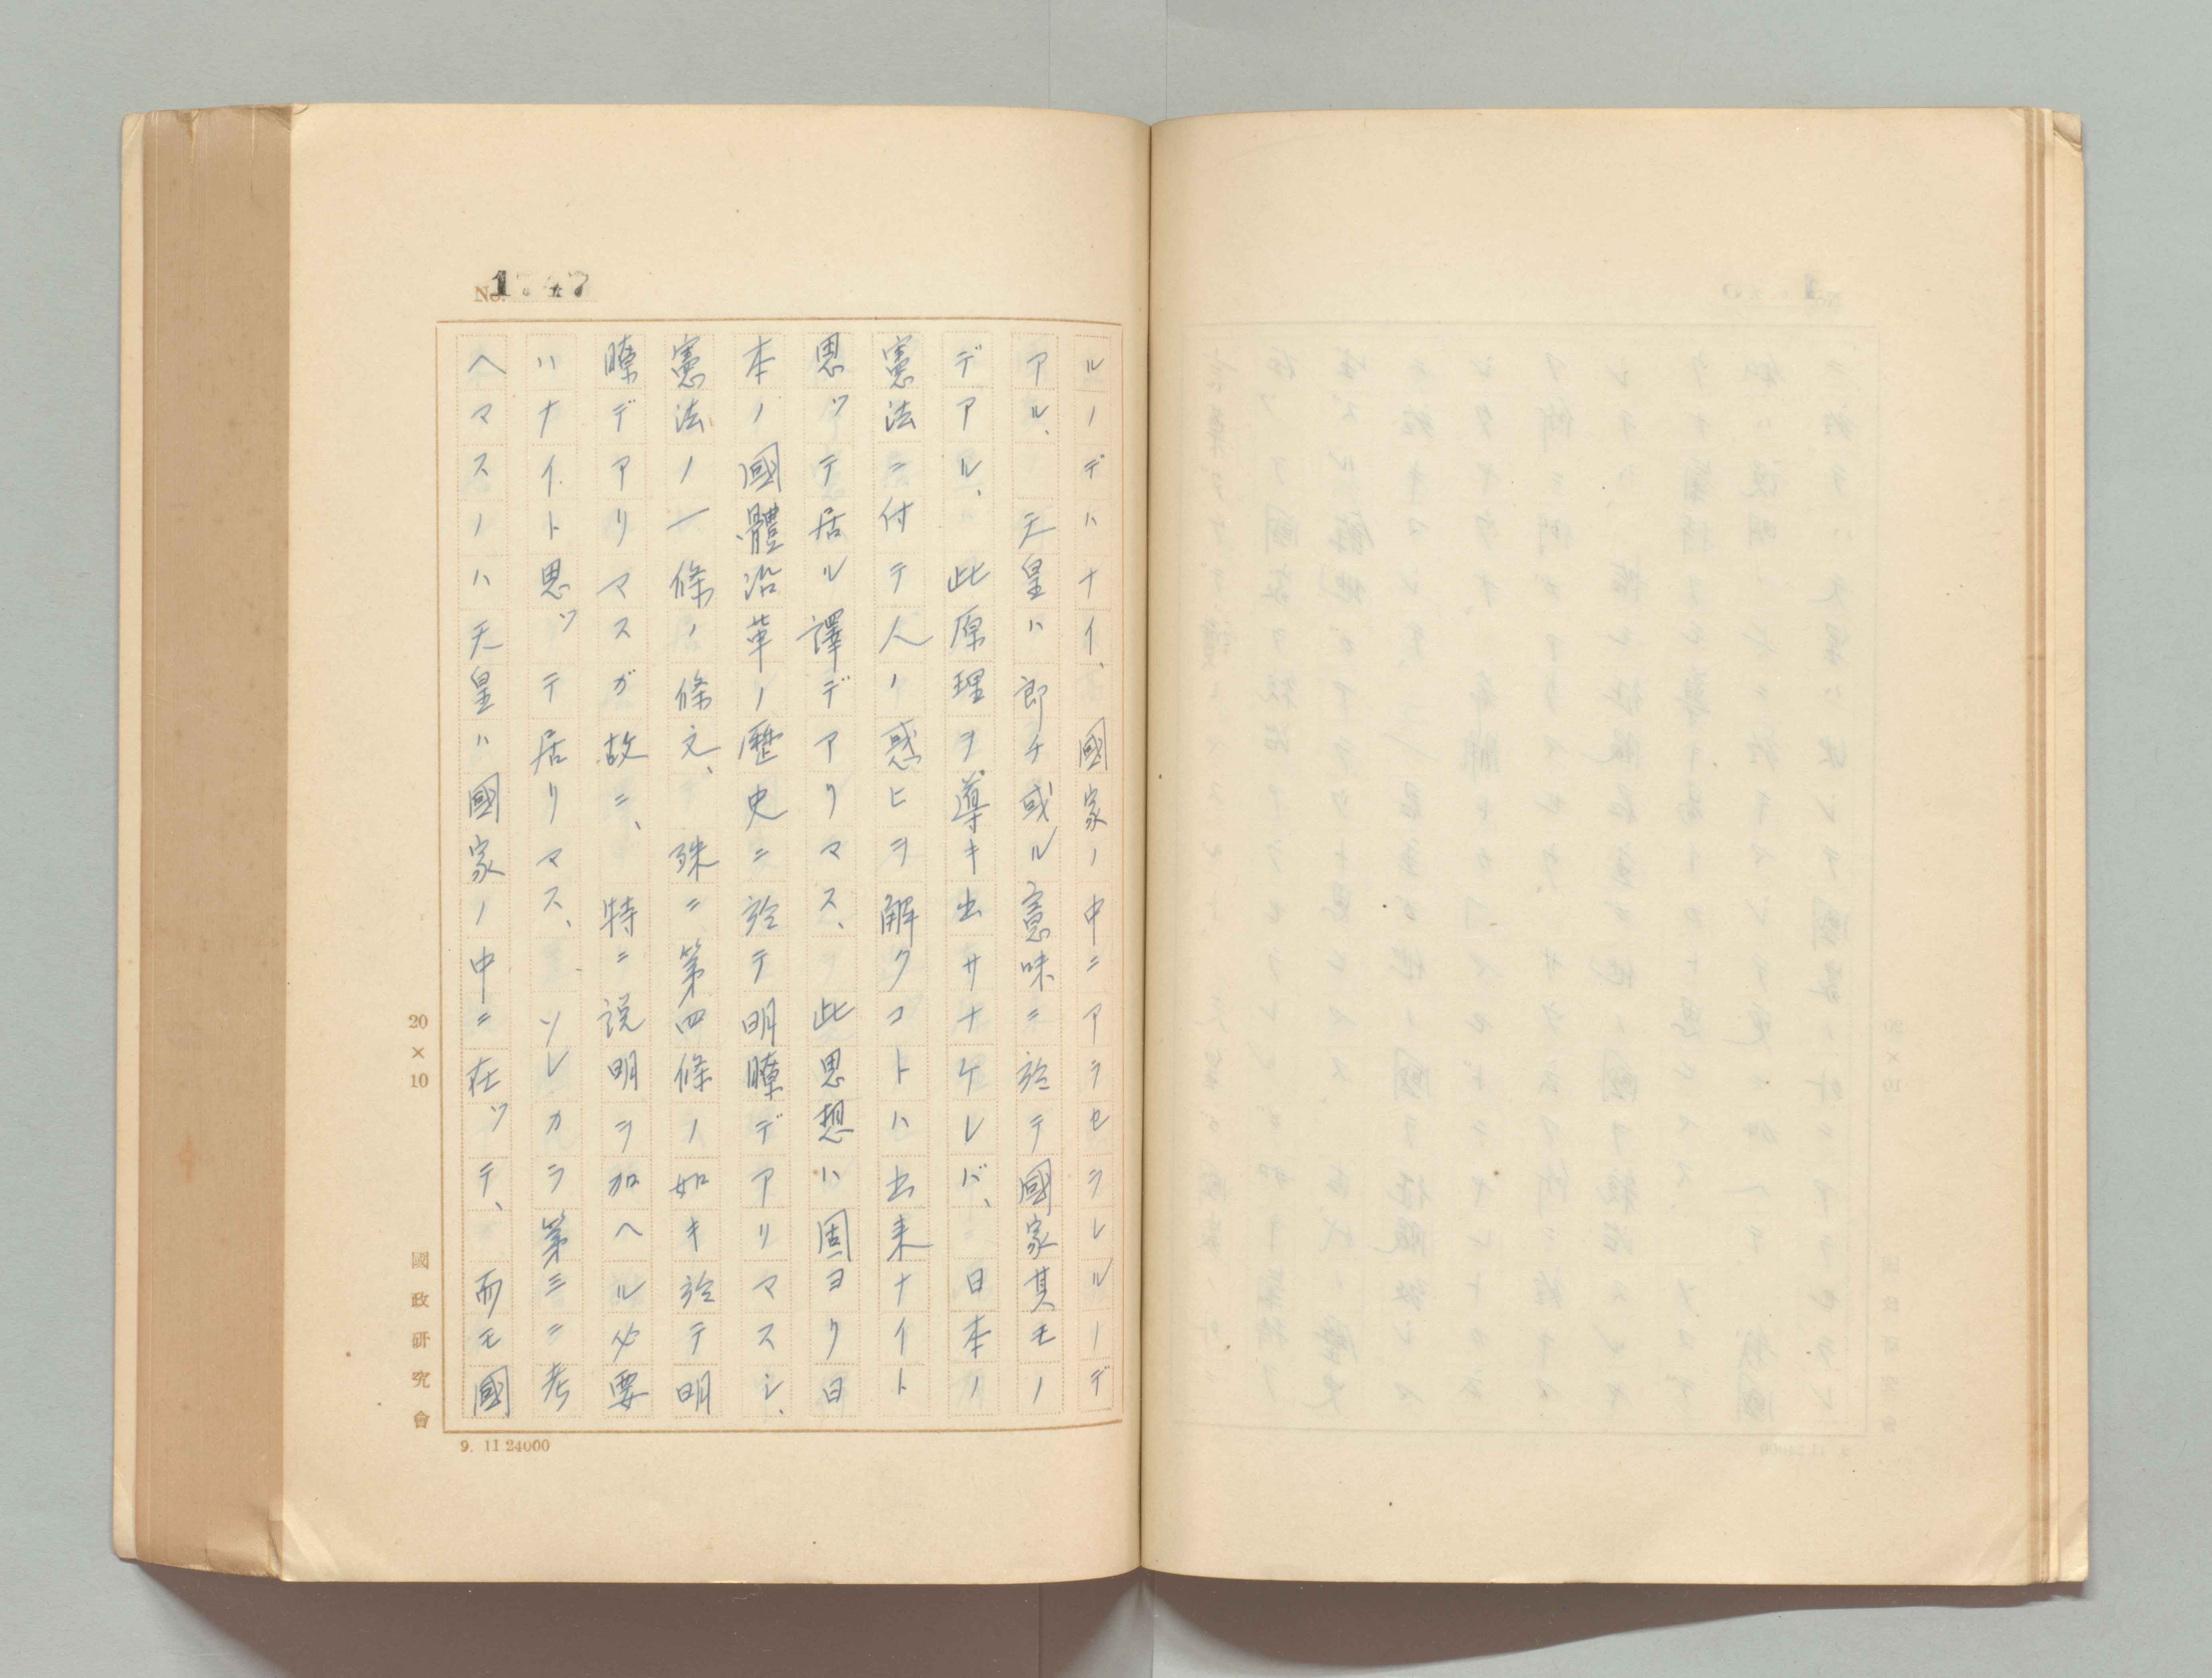 No.
ルノデハナイ、國家ノ中ニアラセラレルノデ
アル、 天皇ハ即チ或ル意味ニ於テ國家其モノ
デアル、 此原理ヲ導キ出サナケレバ、 日本ノ
憲法ニ付テ人ノ惑ヒヲ解クコトハ出来ナイト
思ツテ居ル譯デアリマス、 此思想ハ固ヨリ日
本ノ國體沿革ノ歴史ニ於テ明瞭デアリマスシ、
憲法ノ一條ノ條文、 殊ニ第四條ノ如キ於テ明
瞭デアリマスガ故ニ、 特ニ説明ヲ加ヘル必要
ハナイト思ツテ居リマス、 ソレカラ第三ニ考
ヘマスノハ天皇ハ國家ノ中ニ在ツテ、 而モ國
20×10
國政研究會
9. 11 24000